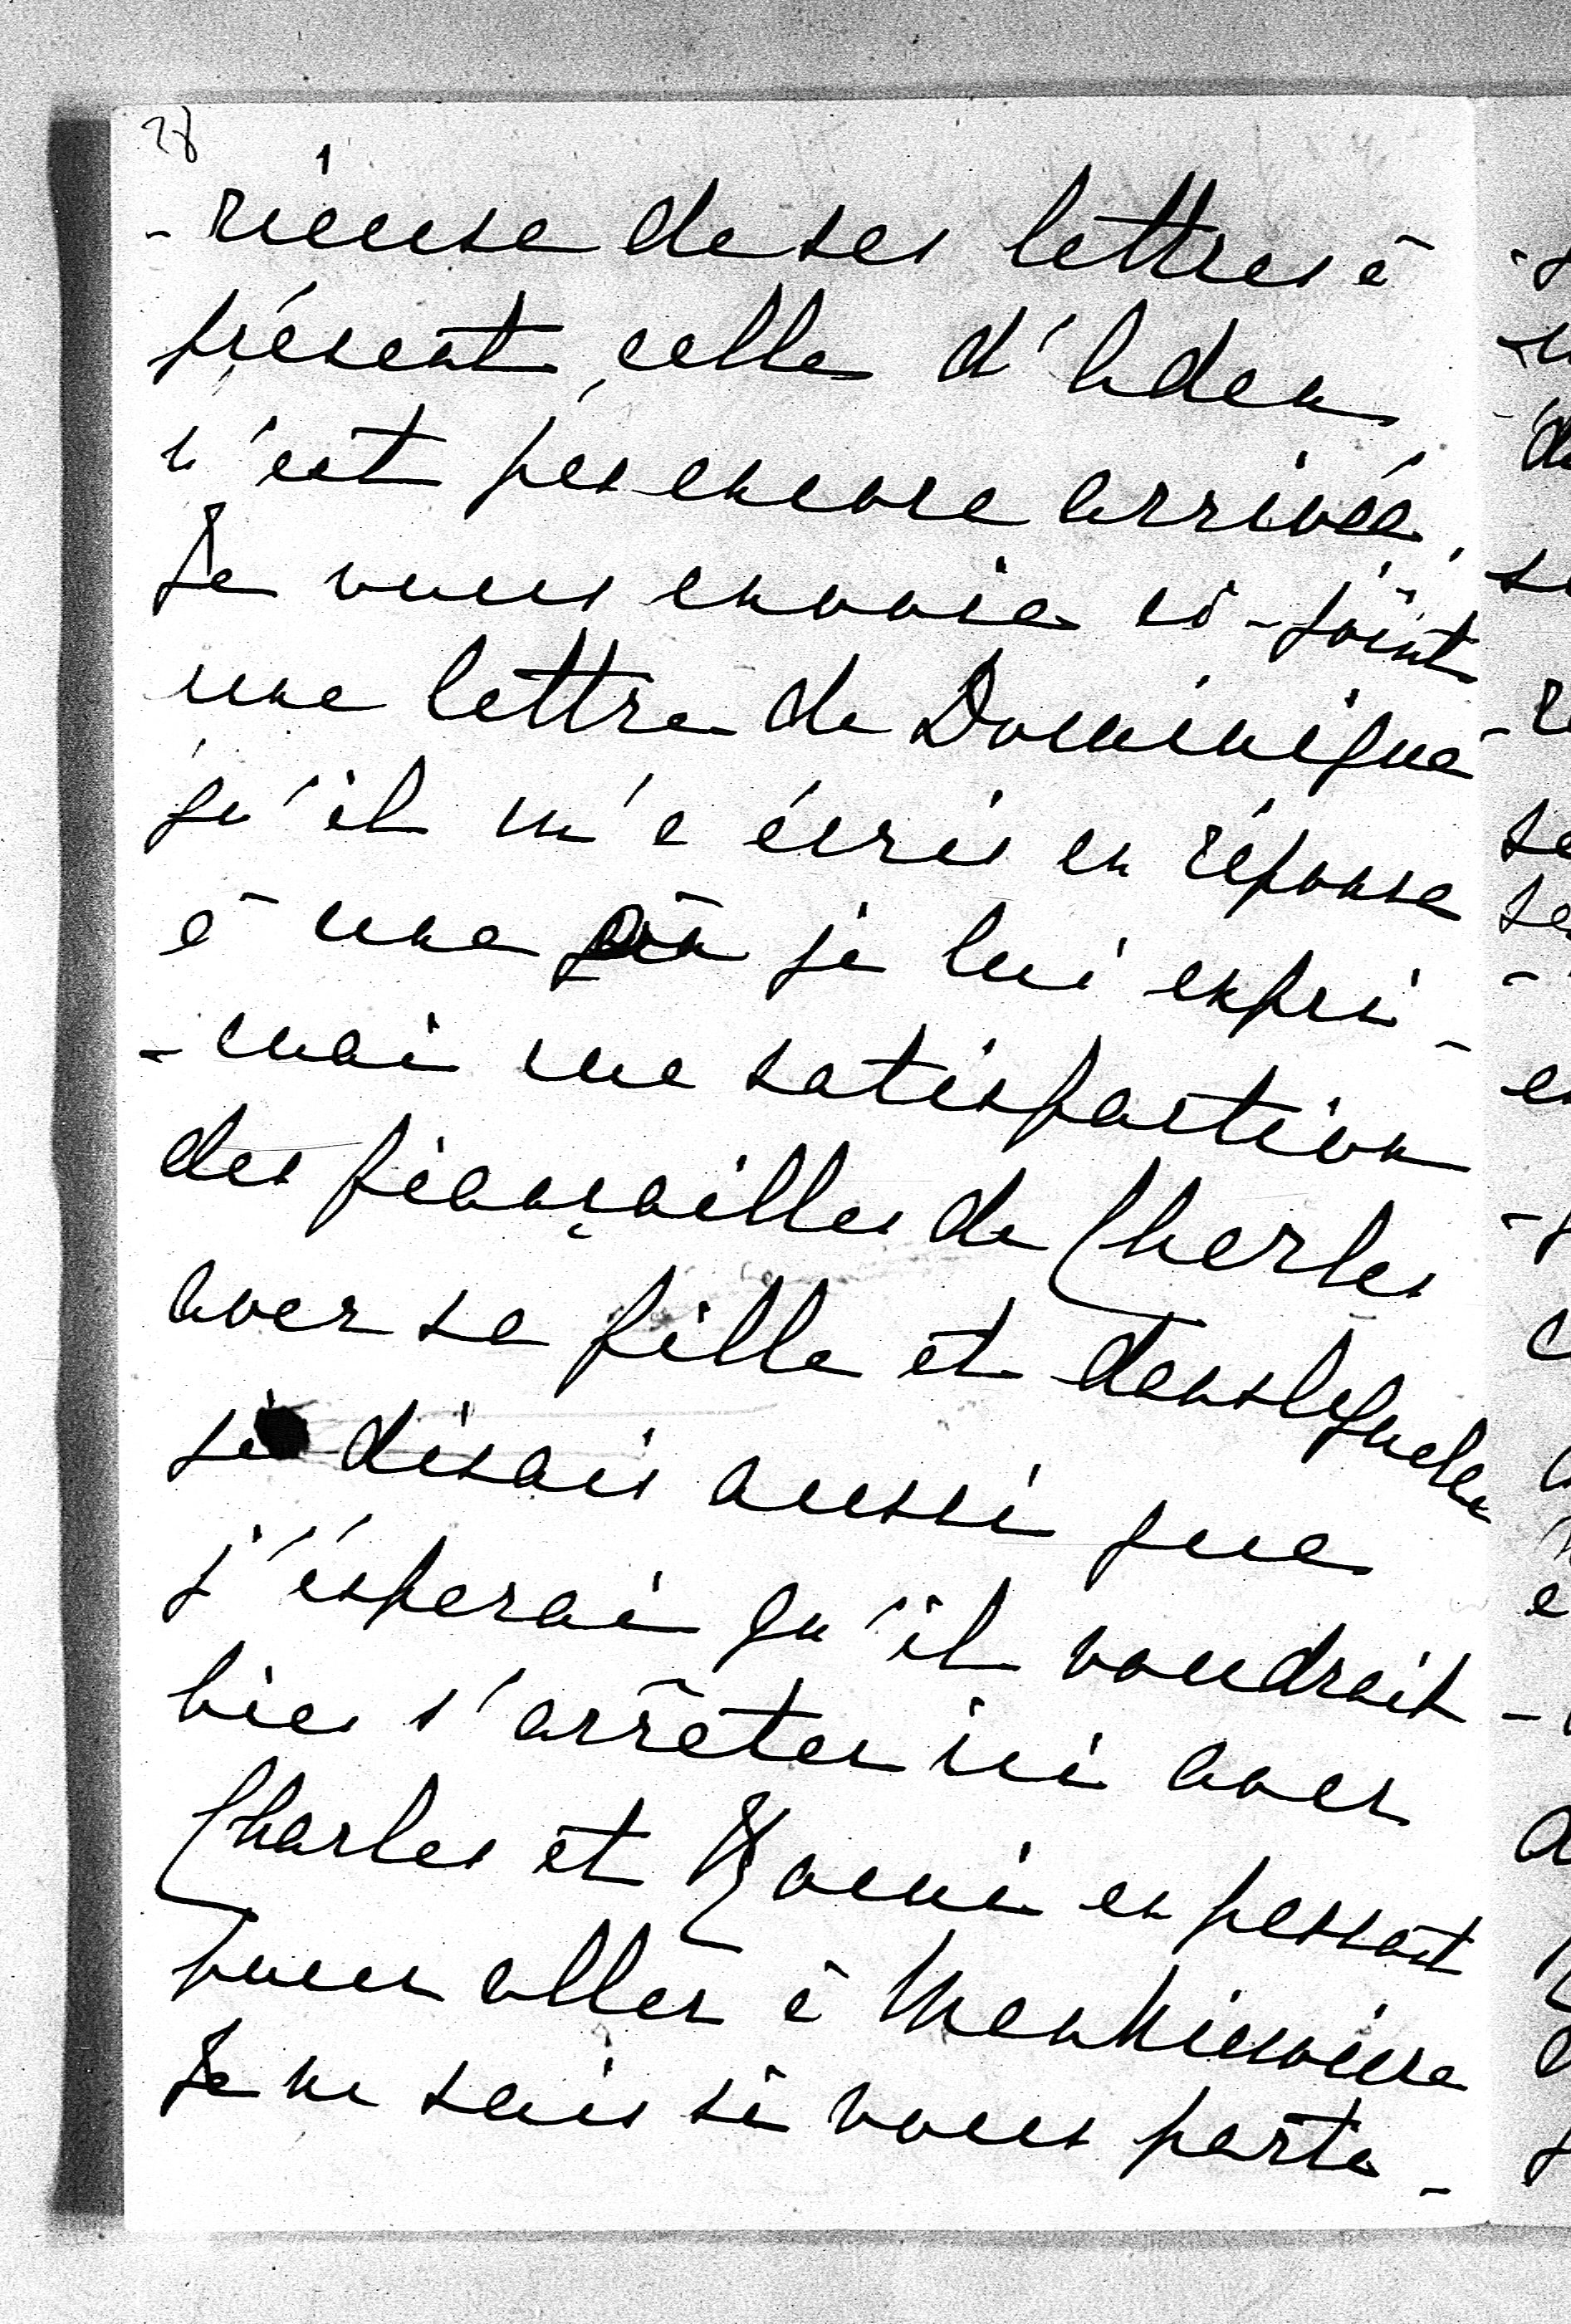 28
-rieuse de ses lettres à
présent, celle d'Aden
n'est pas encore arrivée.
Je vous envoie ci-joint
une lettre de Dominique
qu'il m'a écris en réponse
à une où je lui expri-
-mai ma satisfaction
des fiançailles de Charles
avec sa fille et dans laquelle
je disais aussi que
j'ésperai qu'il voudrait
bien s'arrêter ici avec
Charles et en passant
pour aller à
Je ne sais si vous parta-